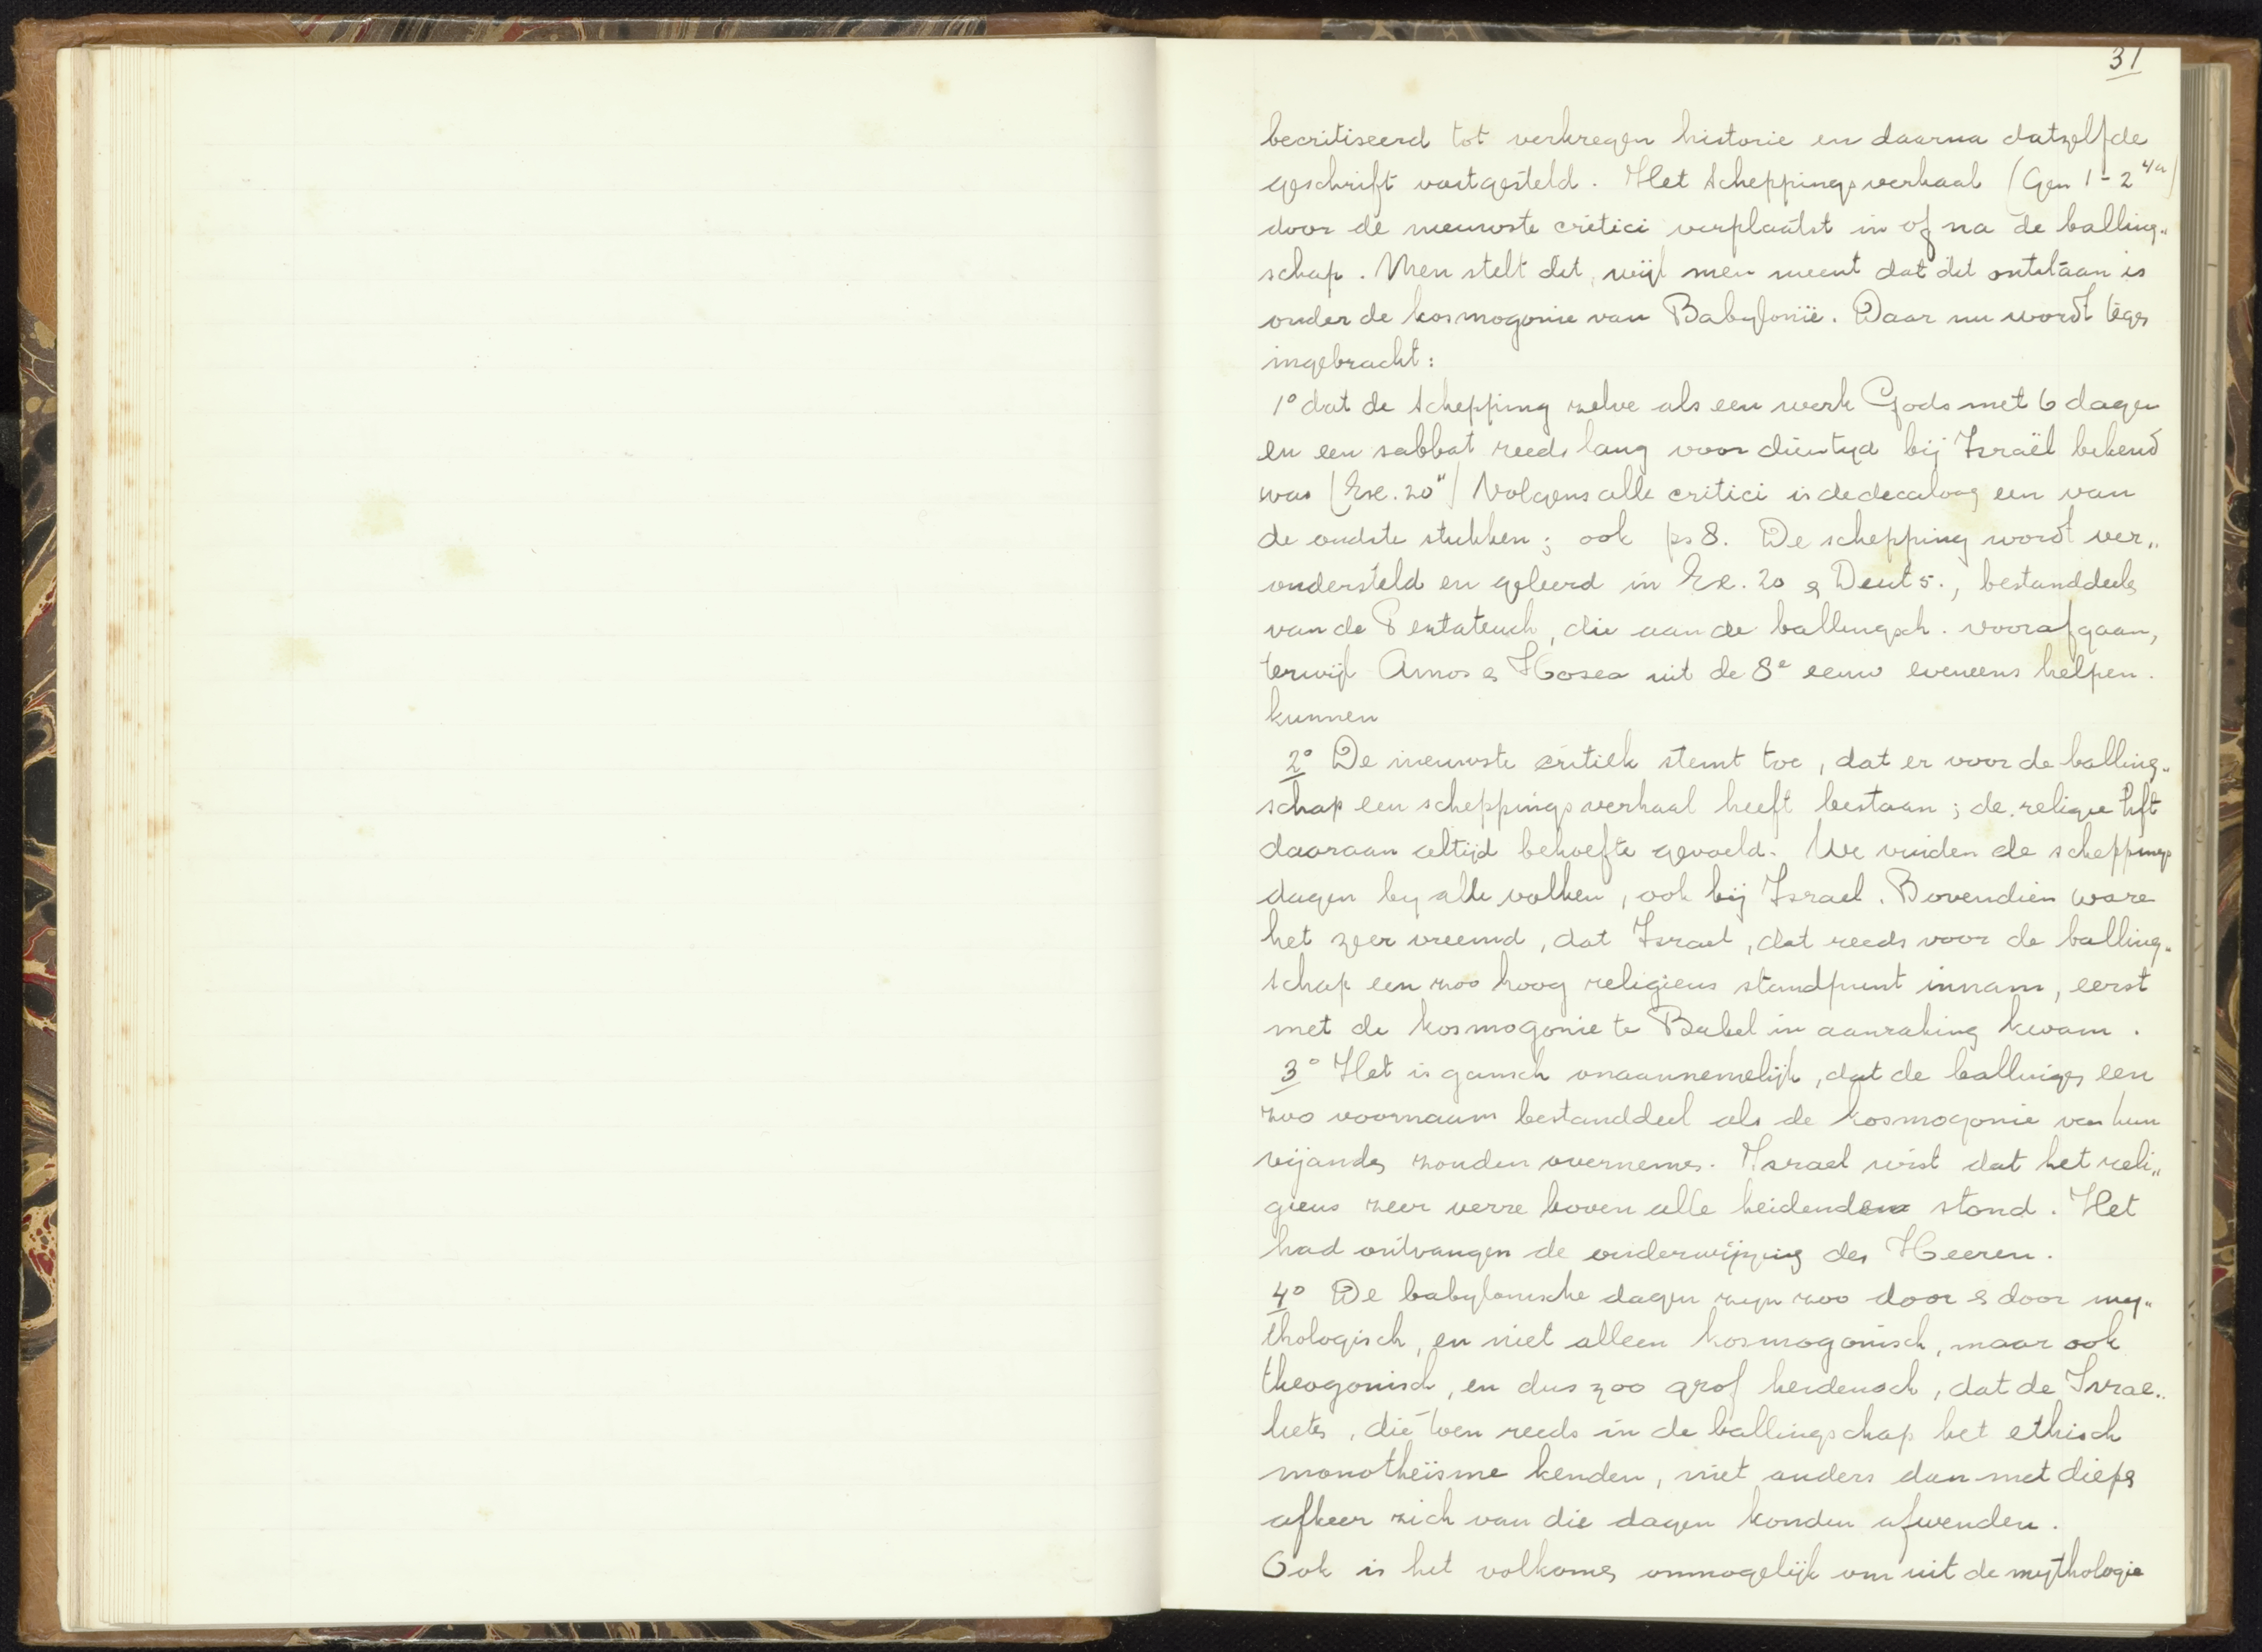 31
becritiseerd tot verkregen historie en daarna datzelfde
geschrift vastgesteld. Het scheppingsverhaal (Gen 1-2 4a)
door de nieuwste critici verplaatst in of na de balling„
schap. Men stelt dit, wijl men meent dat dit ontstaan is
onder de kosmogonie van Babylonië. Daar nu wordt tegen
ingebracht:
1° dat de schepping zelve als een werk Gods met 6 dagen
en een sabbat reeds lang voor dien tijd bij Israël bekend
was (Ex. 20 11) Volgens alle critici is de decaloog een van
de oudste stukken; ook ps 8. De schepping wordt ver„
ondersteld en geleerd in Ex. 20 en Deut 5., bestanddeelen
van de Pentateuch, die aan de ballingsch. voorafgaan,
terwijl Amos en Hosea uit de 8e eeuw eveneens helpen.
kunnen
2° De nieuwste critiek stemt toe, dat er voor de balling„
schap een scheppingsverhaal heeft bestaan; de religie hft
daaraan altijd behoefte gevoeld. We vinden de scheppings
dagen by alle volken, ook bij Israel. Bovendien ware
het zeer vreemd, dat Israel, dat reeds voor de balling„
schap een zoo hoog religieus standpunt innam, eerst
met de kosmogonie te Babel in aanraking kwam.
3° Het is gansch onaannemelijk, dat de ballingen een
zoo voornaam bestanddeel als de kosmogonie van hun
vijanden zouden overnemen. Israel wist dat het reli„
gieus zeer verre boven alle heidendom stond. Het
had ontvangen de onderwijzing des Heeren.
4° De babylonische dagen zijn zoo door en door my„
thologisch, en niet alleen kosmogonisch, maar ook
theogonisch, en dus zoo grof heidensch, dat de Israe„
lieten, die toen reeds in de ballingschap het ethisch
monotheïsme kenden, niet anders dan met diepen
afkeer zich van die dagen konden afwenden.
Ook is het volkomen onmogelijk om uit de mythologie